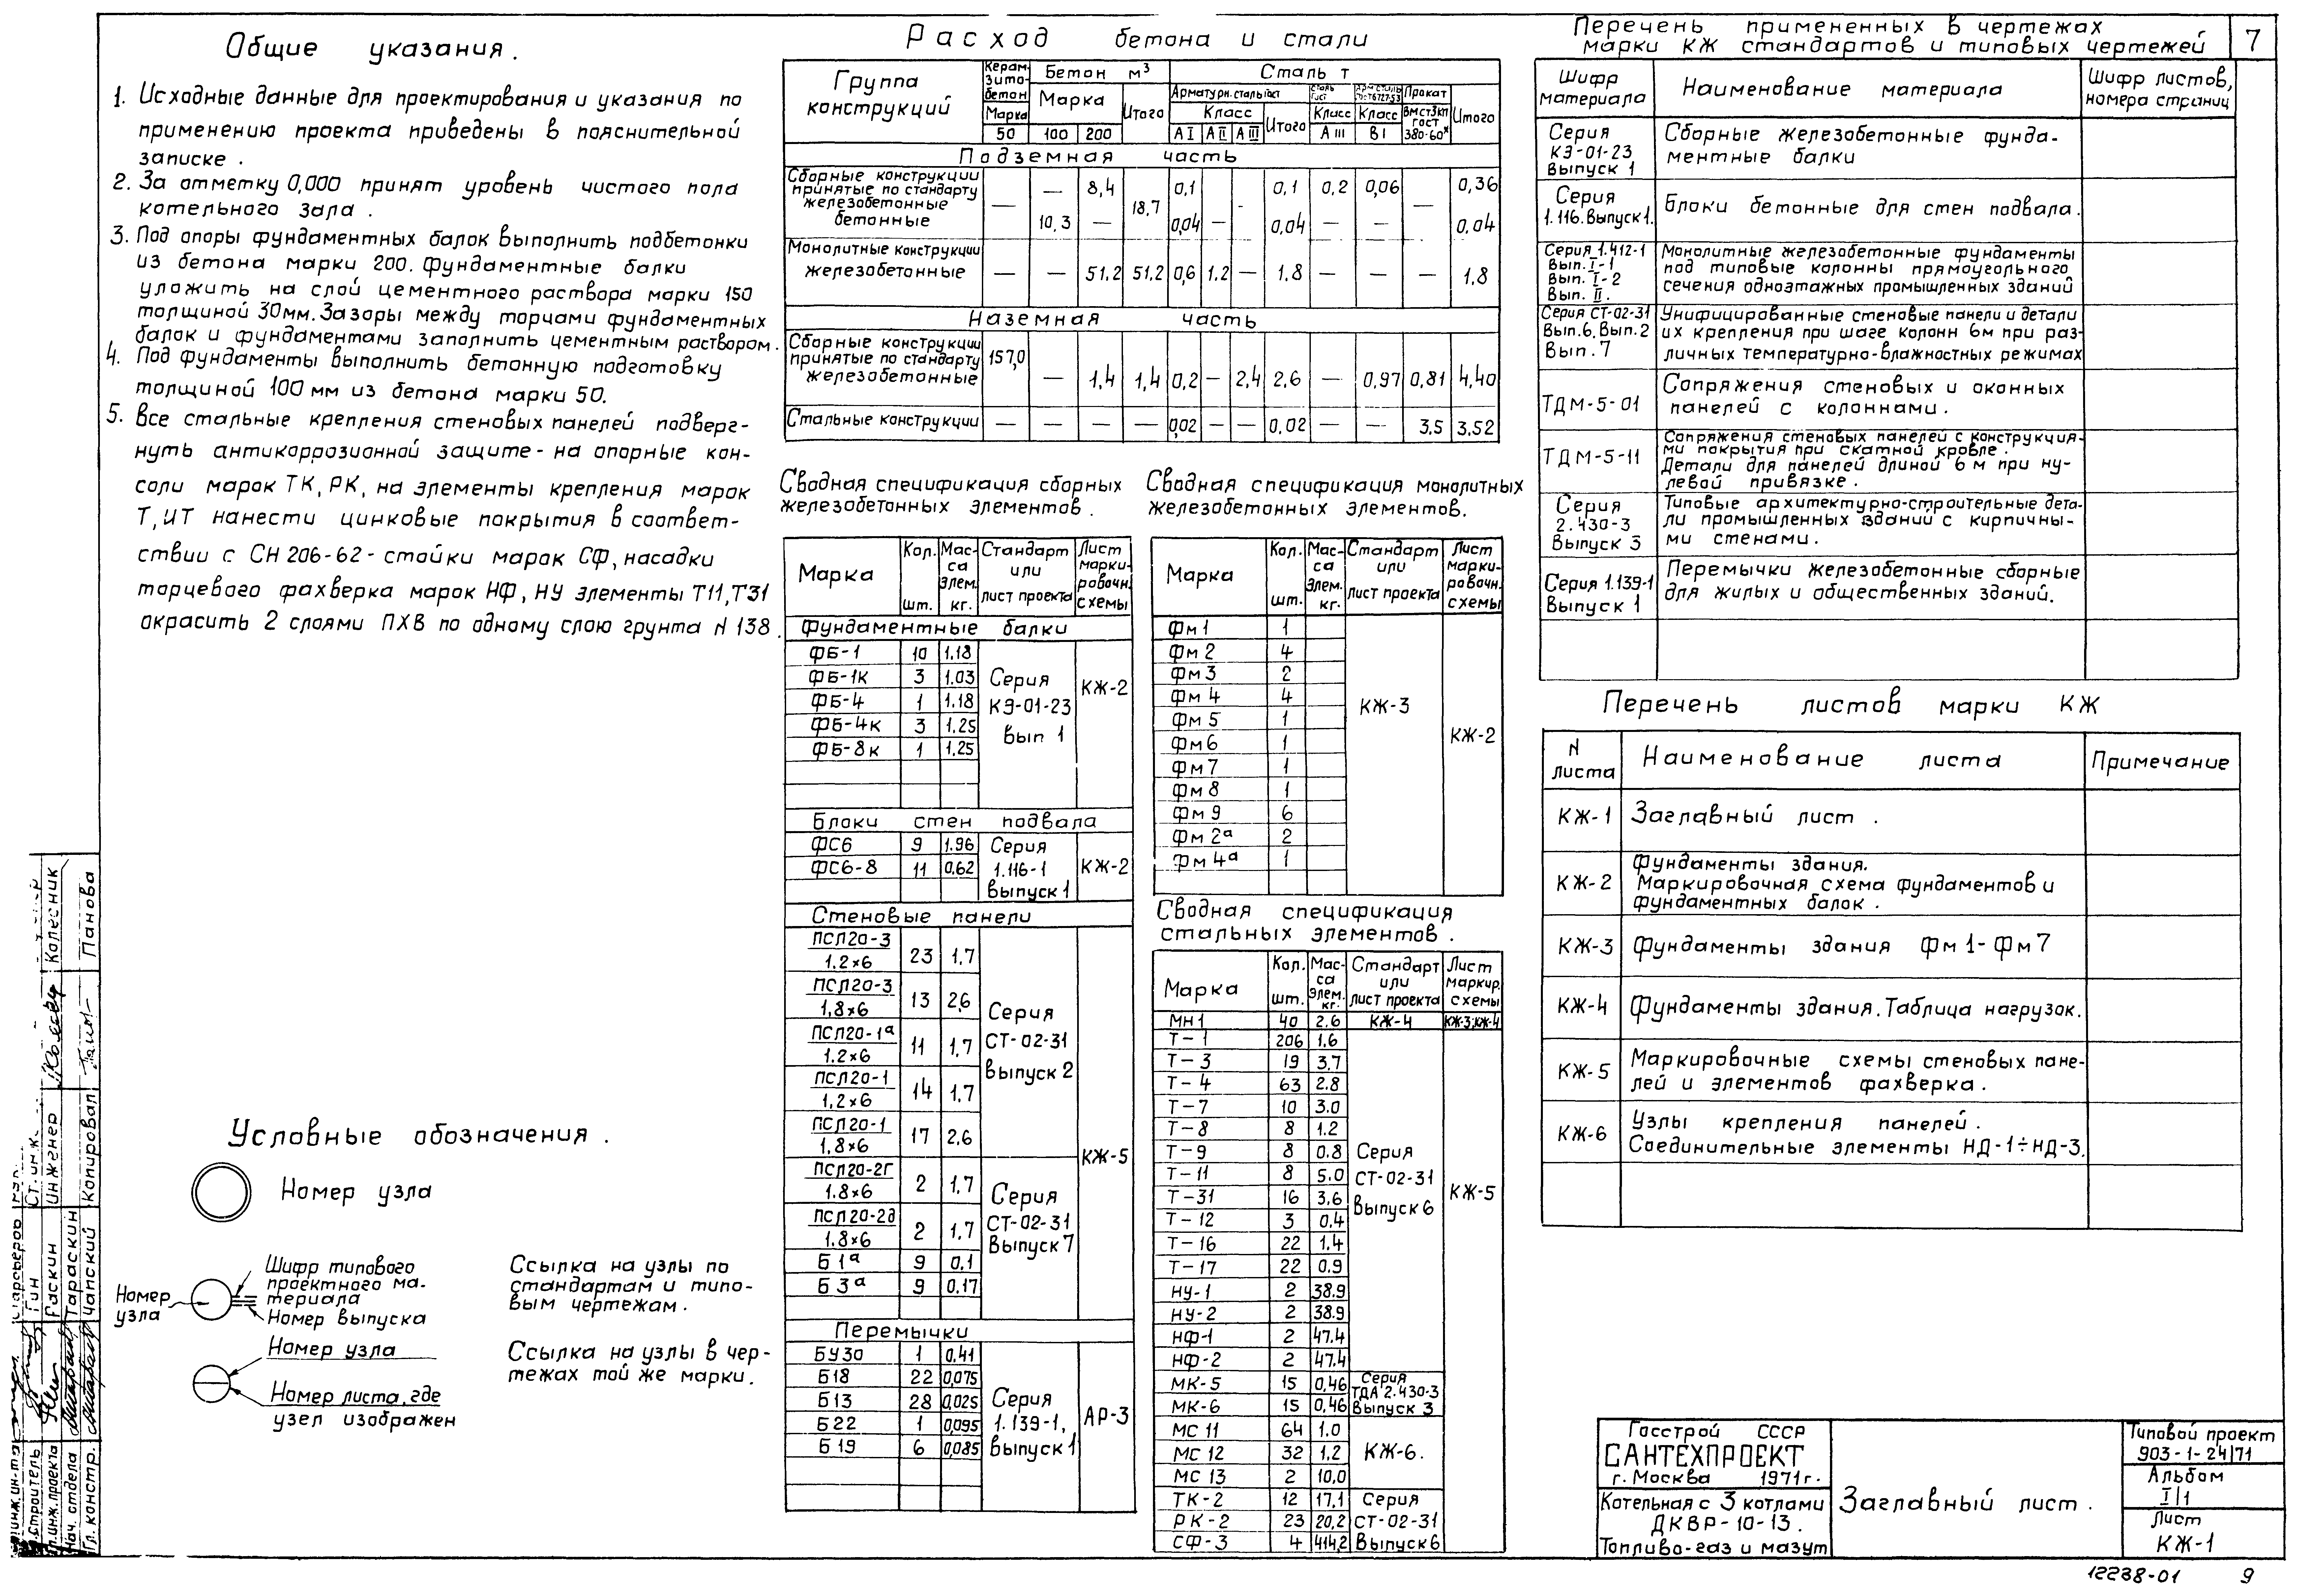 Общие указания.
1. Исходные данные для проектирования и указания по
применению проекта приведены в пояснительной
записке.
2. За отметку 0,000 принят уровень чистого пола
котельного зала.
3. Под опоры фундаментных балок выполнить подбетонки
из бетона марки 200. Фундаментные балки
уложить на слой цементного раствора марки 150
толщиной 30мм. Зазоры между торцами фундаментных
балок и фундаментами заполнить цементным раствором.
4. Под фундаменты выполнить бетонную подготовку
толщиной 100 мм из бетона марки 50.
5. Все стальные крепления стеновых панелей подверг-
нуть антикоррозионной защите - на опорные кон-
соли марок ТК, РК, на элементы крепления марок
Т, ИТ нанести цинковые покрытия в соответ-
ствии с СН 206-62 - стойки марок СФ, насадки
торцевого фахверка марок НФ, НУ элементы Т11, Т31
окрасить 2 слоями ПХВ по одному слою грунта N 138.
Условные обозначения.
Номер узла
Номер узла
Шифр типового проектного ма-
териала
Номер выпуска
Ссылка на узлы по
стандартам и типо-
вым чертежам.
Номер узла
Номер листа, где
узел изображен
Ссылка на узлы в чер-
тежах той же марки.
Расход бетона и стали
Группа конструкций | Керам-зито-бетон | Бетон м³ | Сталь т
Марка | Марка | Итого | Арматурн. сталь гост | Прокат | Итого
Класс | Итого | Класс | Класс | ВМст3кп гост
50 | 100 | 200 | А I | А II | А III | А III | В I | 380-60*
Подземная часть
Сборные конструкции
принятые по стандарту
железобетонные — — 8,4 18,7 0,1 0,1 0,2 0,06 — 0,36
бетонные 10,3 — 0,04 — 0,04 — — 0,04
Монолитные конструкции
железобетонные — — 51.2 51,2 0,6 1.2 — 1.8 — — — 1.8
Наземная часть
Сборные конструкции
принятые по стандарту 157,0
железобетонные — 1,4 1,4 0,2 — 2,4 2,6 — 0,97 0,81 4,40
Стальные конструкции — — — — 0,02 — — 0,02 — — 3,5 3,52
Сводная спецификация сборных
железобетонных элементов.
Марка | Кол. шт. | Мас-са элем. кг. | Стандарт или лист проекта | Лист марки-ровочн. схемы
Фундаментные балки
ФБ-1 10 1.18
ФБ-1к 3 1.03
ФБ-4 1 1.18
ФБ-4к 3 1.25
ФБ-8к 1 1.25
Серия
КЭ-01-23
вып 1
КЖ-2
Блоки стен подвала
ФС6 9 1.96
ФС6-8 11 0,62
Серия
1.116-1
выпуск 1
КЖ-2
Стеновые панели
ПСЛ20-3
1.2×6 23 1,7
ПСЛ20-3
1,8×6 13 2,6
ПСЛ20-1а
1.2×6 11 1,7
ПСЛ20-1
1,2×6 14 1,7
ПСЛ20-1
1,8×6 17 2.6
Серия
СТ-02-31
выпуск 2
ПСЛ20-2Г
1.8×6 2 1,7
ПСЛ20-2д
1.8×6 2 1,7
Б 1а 9 0,1
Б 3а 9 0,17
Серия
СТ-02-31
Выпуск 7
КЖ-5
Перемычки
БУ30 1 0,41
Б18 22 0,075
Б13 28 0,025
Б22 1 0,095
Б19 6 0,085
Серия
1.139-1,
выпуск 1
АР-3
Сводная спецификация монолитных
железобетонных элементов.
Марка | Кол. шт. | Мас-са элем. кг. | Стандарт или лист проекта | Лист марки-ровочн. схемы
Фм1 1
Фм2 4
Фм3 2
Фм4 4
Фм5 1
Фм6 1
Фм7 1
Фм8 1
Фм9 6
Фм2а 2
Фм4а 1
КЖ-3
КЖ-2
Сводная спецификация
стальных элементов.
Марка | Кол. шт. | Мас-са элем. кг. | Стандарт или лист проекта | Лист маркир. схемы
МН1 40 2.6 КЖ-4 КЖ-3; КЖ-4
Т-1 206 1.6
Т-3 19 3.7
Т-4 63 2.8
Т-7 10 3.0
Т-8 8 1.2
Т-9 8 0.8
Т-11 8 5.0
Т-31 16 3,6
Т-12 3 0,4
Т-16 22 1.4
Т-17 22 0.9
НУ-1 2 38.9
НУ-2 2 38.9
НФ-1 2 47.4
НФ-2 2 47.4
Серия
СТ-02-31
Выпуск 6
КЖ-5
МК-5 15 0,46
МК-6 15 0,46
Серия
ТДА 2.430-3
Выпуск 3
МС 11 64 1.0
МС 12 32 1,2
МС 13 2 10,0
КЖ-6.
ТК-2 12 17,1
РК-2 23 20,2
СФ-3 4 414,2
Серия
СТ-02-31
Выпуск 6
Перечень примененных в чертежах
марки КЖ стандартов и типовых чертежей
7
Шифр материала | Наименование материала | Шифр листов, номера страниц
Серия КЭ-01-23 Выпуск 1 | Сборные железобетонные фунда-
ментные балки
Серия 1.116. Выпуск 1. | Блоки бетонные для стен подвала.
Серия 1.412-1 Вып. I-1 Вып. I-2 Вып. II. | Монолитные железобетонные фундаменты
под типовые колонны прямоугольного
сечения одноэтажных промышленных зданий
Серия СТ-02-31 Вып.6, Вып.2 Вып.7 | Унифицированные стеновые панели и детали
их крепления при шаге колонн 6м при раз-
личных температурно-влажностных режимах
ТДМ-5-01 | Сопряжения стеновых и оконных
панелей с колоннами.
ТДМ-5-11 | Сопряжения стеновых панелей с конструкция-
ми покрытия при скатной кровле.
Детали для панелей длиной 6 м при ну-
левой привязке.
Серия 2.430-3 Выпуск 3 | Типовые архитектурно-строительные дета-
ли промышленных зданий с кирпичны-
ми стенами.
Серия 1.139-1 Выпуск 1 | Перемычки железобетонные сборные
для жилых и общественных зданий.
Перечень листов марки КЖ
N листа | Наименование листа | Примечание
КЖ-1 Заглавный лист.
КЖ-2 Фундаменты здания.
Маркировочная схема фундаментов и
фундаментных балок.
КЖ-3 Фундаменты здания Фм1-Фм7
КЖ-4 Фундаменты здания. Таблица нагрузок.
КЖ-5 Маркировочные схемы стеновых пане-
лей и элементов фахверка.
КЖ-6 Узлы крепления панелей.
Соединительные элементы НД-1÷НД-3.
Госстрой СССР
САНТЕХПРОЕКТ
г. Москва 1971г.
Котельная с 3 котлами
ДКВР-10-13.
Топливо-газ и мазут
Заглавный лист.
Типовой проект
903-1-24/71
Альбом
I/1
Лист
КЖ-1
12238-01 9
Гл. констр. Чапский Копировал Панова
Нач. отдела Тараскин
Раскин Инженер Колесник
Гин Ст. инж.